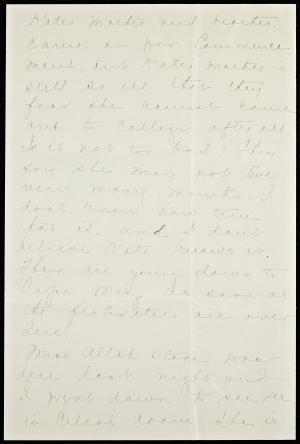 Kate's mother and brother
came on for Commence
ment, but Kate's mother is
still so ill that they
fear she cannot come
out to College after all.
Is it not too bad? They
say she may not live
very many months. I
don't know how true
that is, and I don't
believe Kate knows it.
They are going down to
Cape May as soon as
the festivities are over
here.
Miss Allah was
here last night and
I went down to see her
in room. She is